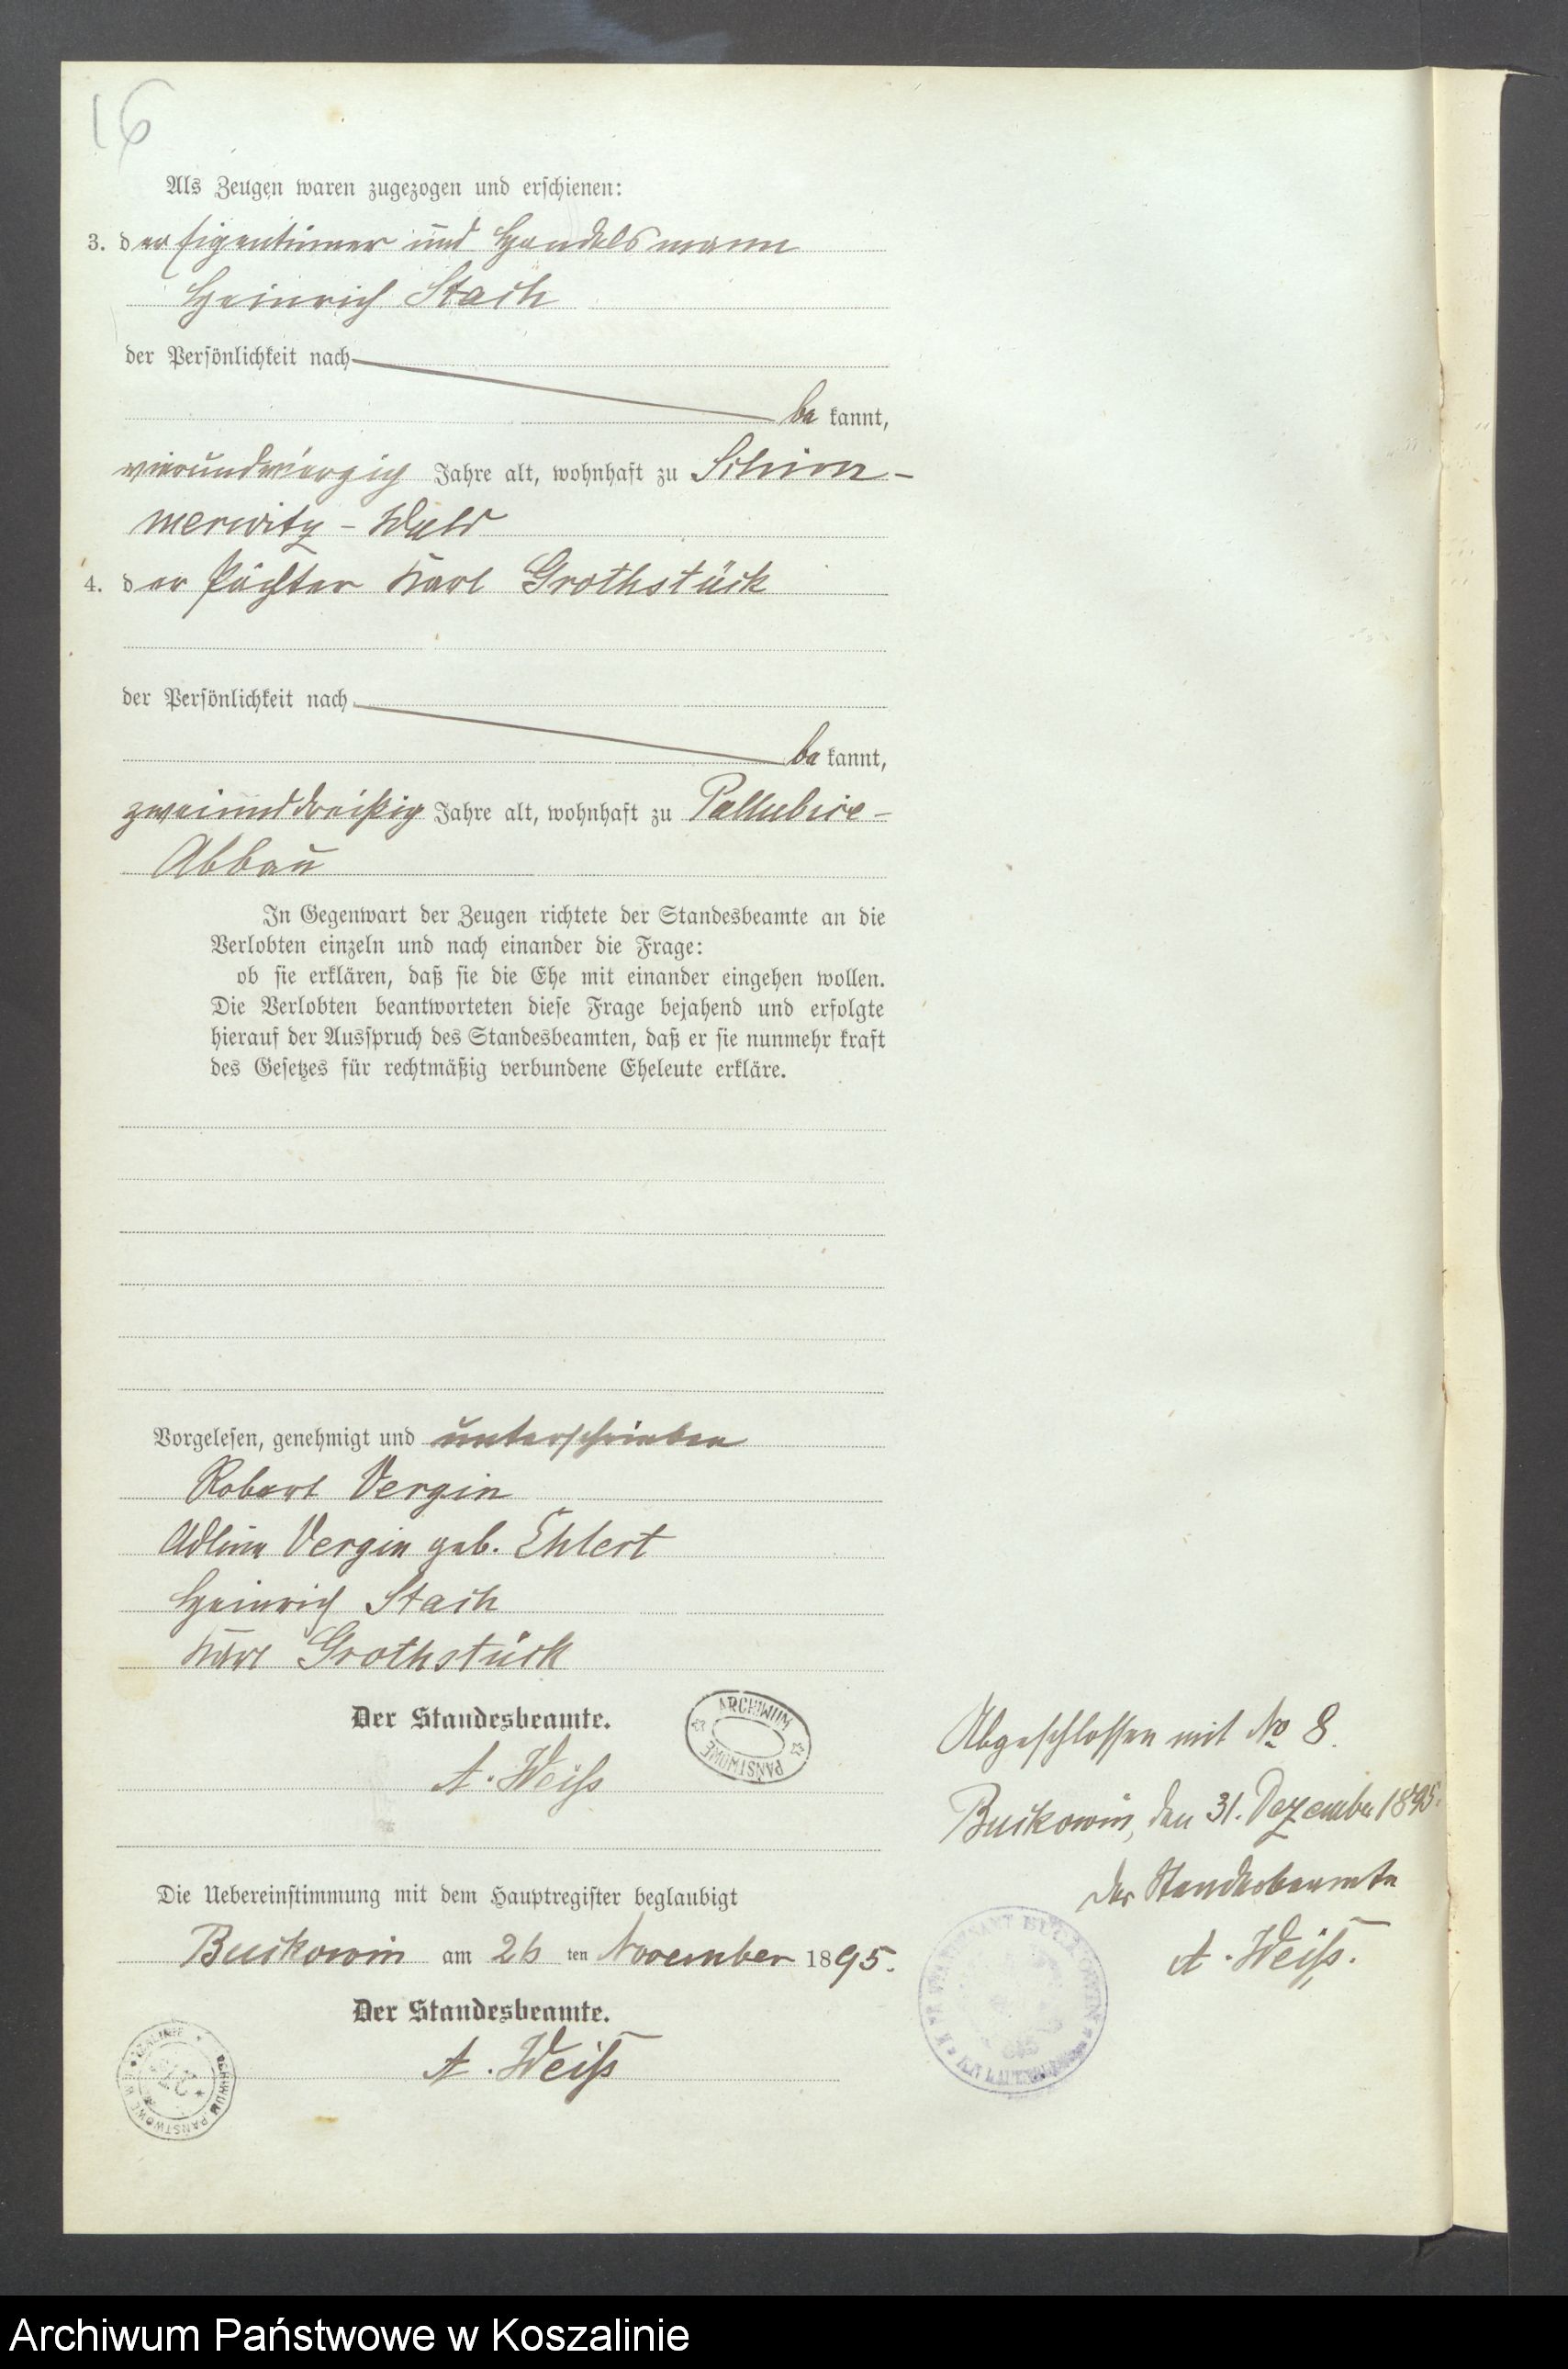 16
Als Zeugen waren zugezogen und erschienen:
3. der Eigentümer und Handelsmann
Heinrich Stach
der Persönlichkeit nach
bekannt,
vierundvierzig Jahre alt, wohnhaft zu Schim-
merwitz-Wald
4. der Pächter Karl Grothstück
der Persönlichkeit nach
bekannt,
zweiunddreißig Jahre alt, wohnhaft zu Pallubice-
Abbau
In Gegenwart der Zeugen richtete der Standesbeamte an die
Verlobten einzeln und nach einander die Frage:
ob sie erklären, daß sie die Ehe mit einander eingehen wollen.
Die Verlobten beantworteten diese Frage bejahend und erfolgte
hierauf der Ausspruch des Standesbeamten, daß er sie nunmehr kraft
des Gesetzes für rechtmäßig verbundene Eheleute erkläre.
Vorgelesen, genehmigt und unterschrieben
Robert Vergin
Vergin geb. Ehlert
Heinrich Stach
Karl Grothstück
Der Standesbeamte.
A. Weiß
ARCHIWUM PAŃSTWOWE
Die Uebereinstimmung mit dem Hauptregister beglaubigt
Buckowin am 26 ten November 1895.
Der Standesbeamte.
A. Weiß
Abgeschlossen mit No 8.
Buckowin, den 31. Dezember 1895.
Der Standesbeamte
A. Weiß.
Archiwum Państwowe w Koszalinie